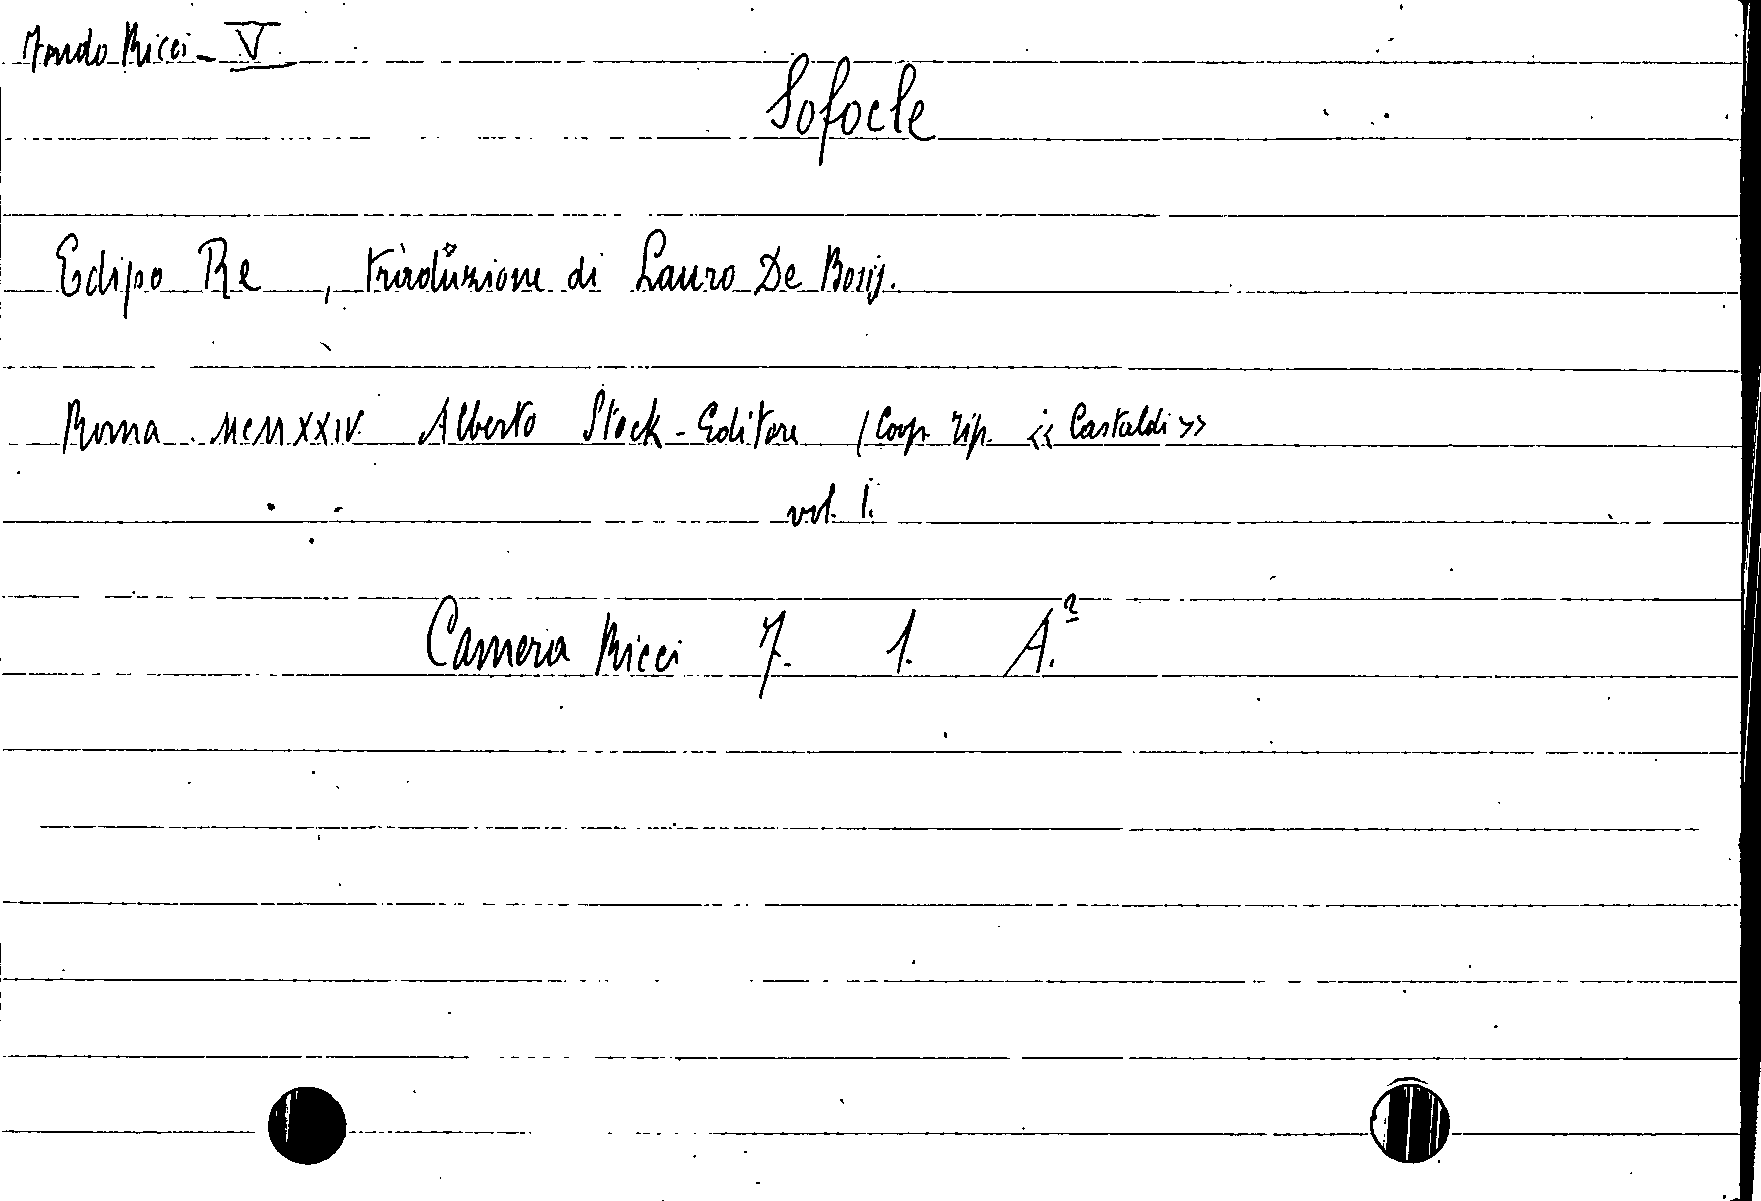 Fondo Ricci - V
Sofocle
Edipo Re , traduzione di Lauro De Bosis.
Roma . MCMXXIV. Alberto Stock - Editore (Coop. Tip. « Castaldi »
vol. 1.
Camera Ricci 7. 1. A.²